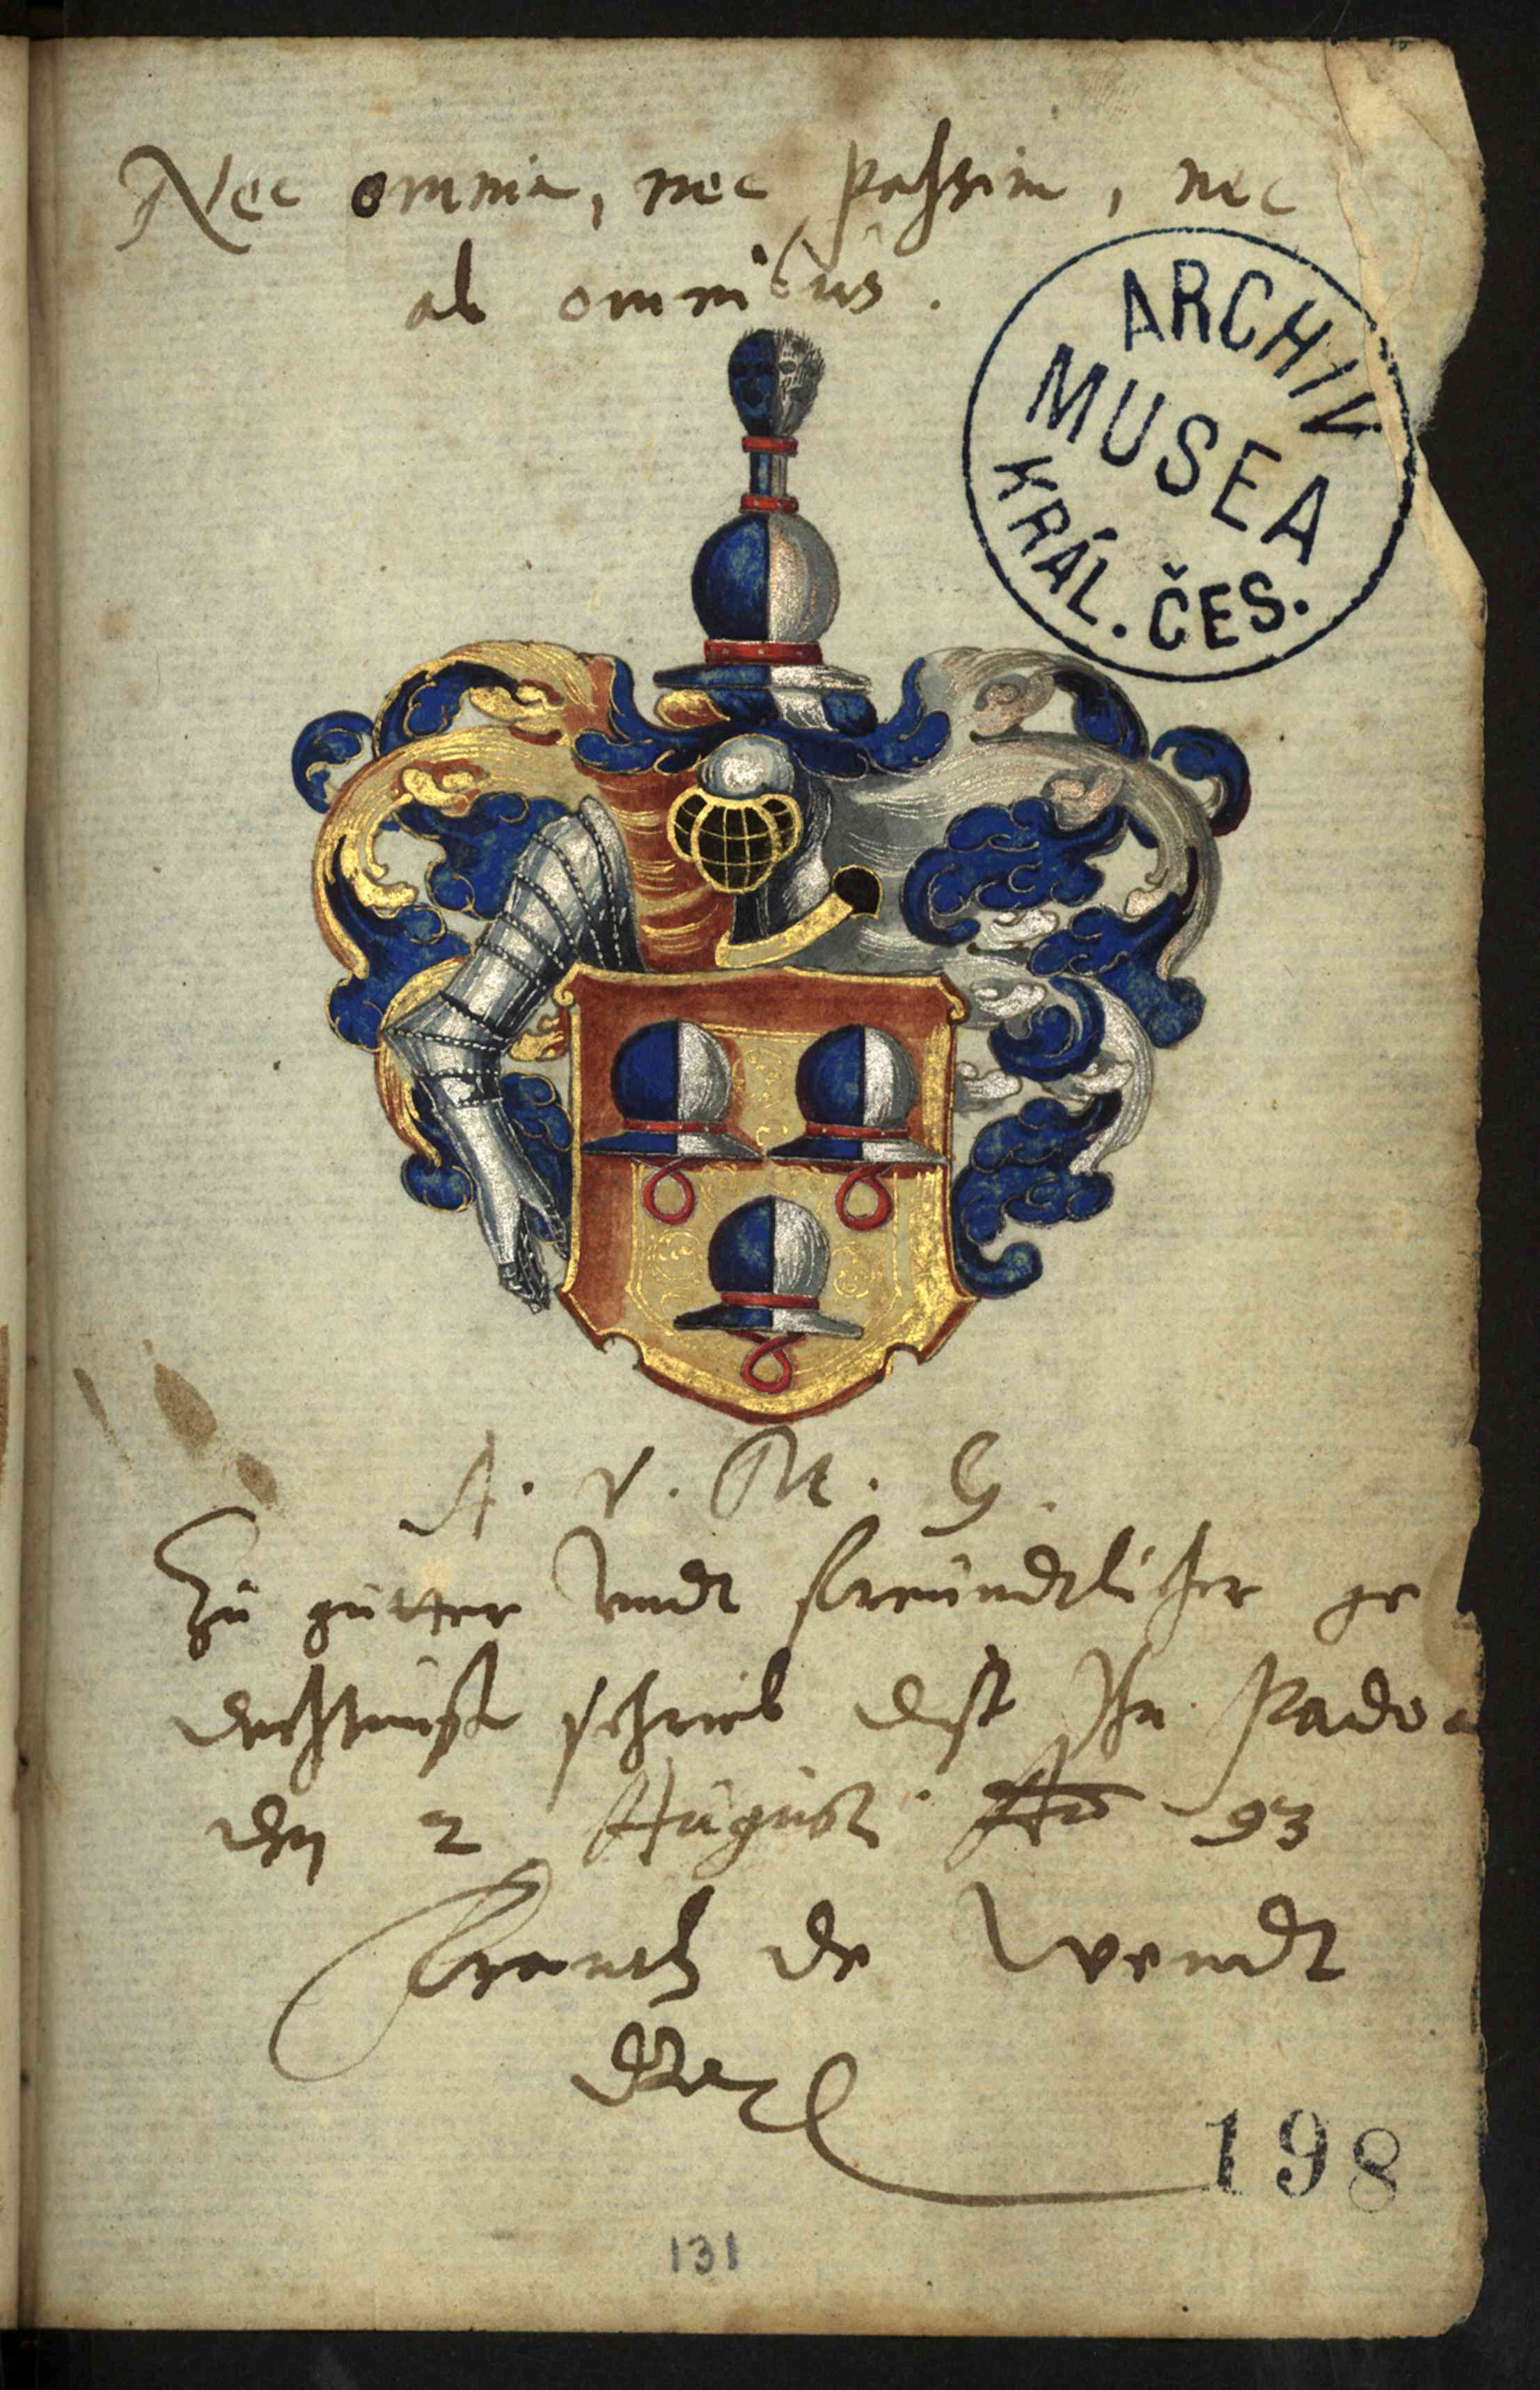 Nec omnia, nec passim, nec
ab omnibus.
ARCHIV
MUSEA
KRÁL. ČES.
A. V. M. G.
Zu gutter vndt freundtlicher ge
dechtnuß schrieb diß Ihn Pado
den 2 August Ao 93
Frantz de Wendt
198
131